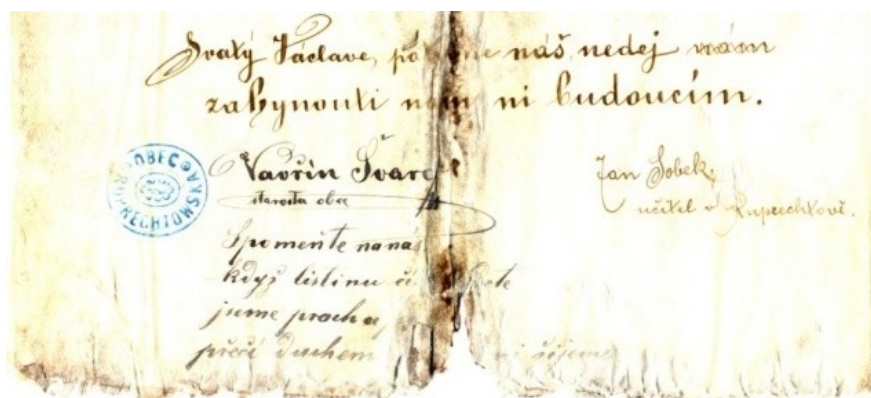 Svatý Václave, náš, nedej nám
zahynouti nám ni budoucím.
OBEC RUPRECHTOWSKÁ
Vavřin Švarc
starosta obce
Jan Sobek,
učitel v Ruprechtově.
Spomeňte na nás
když listinu
jsme prach a
přečí duchem žijeme